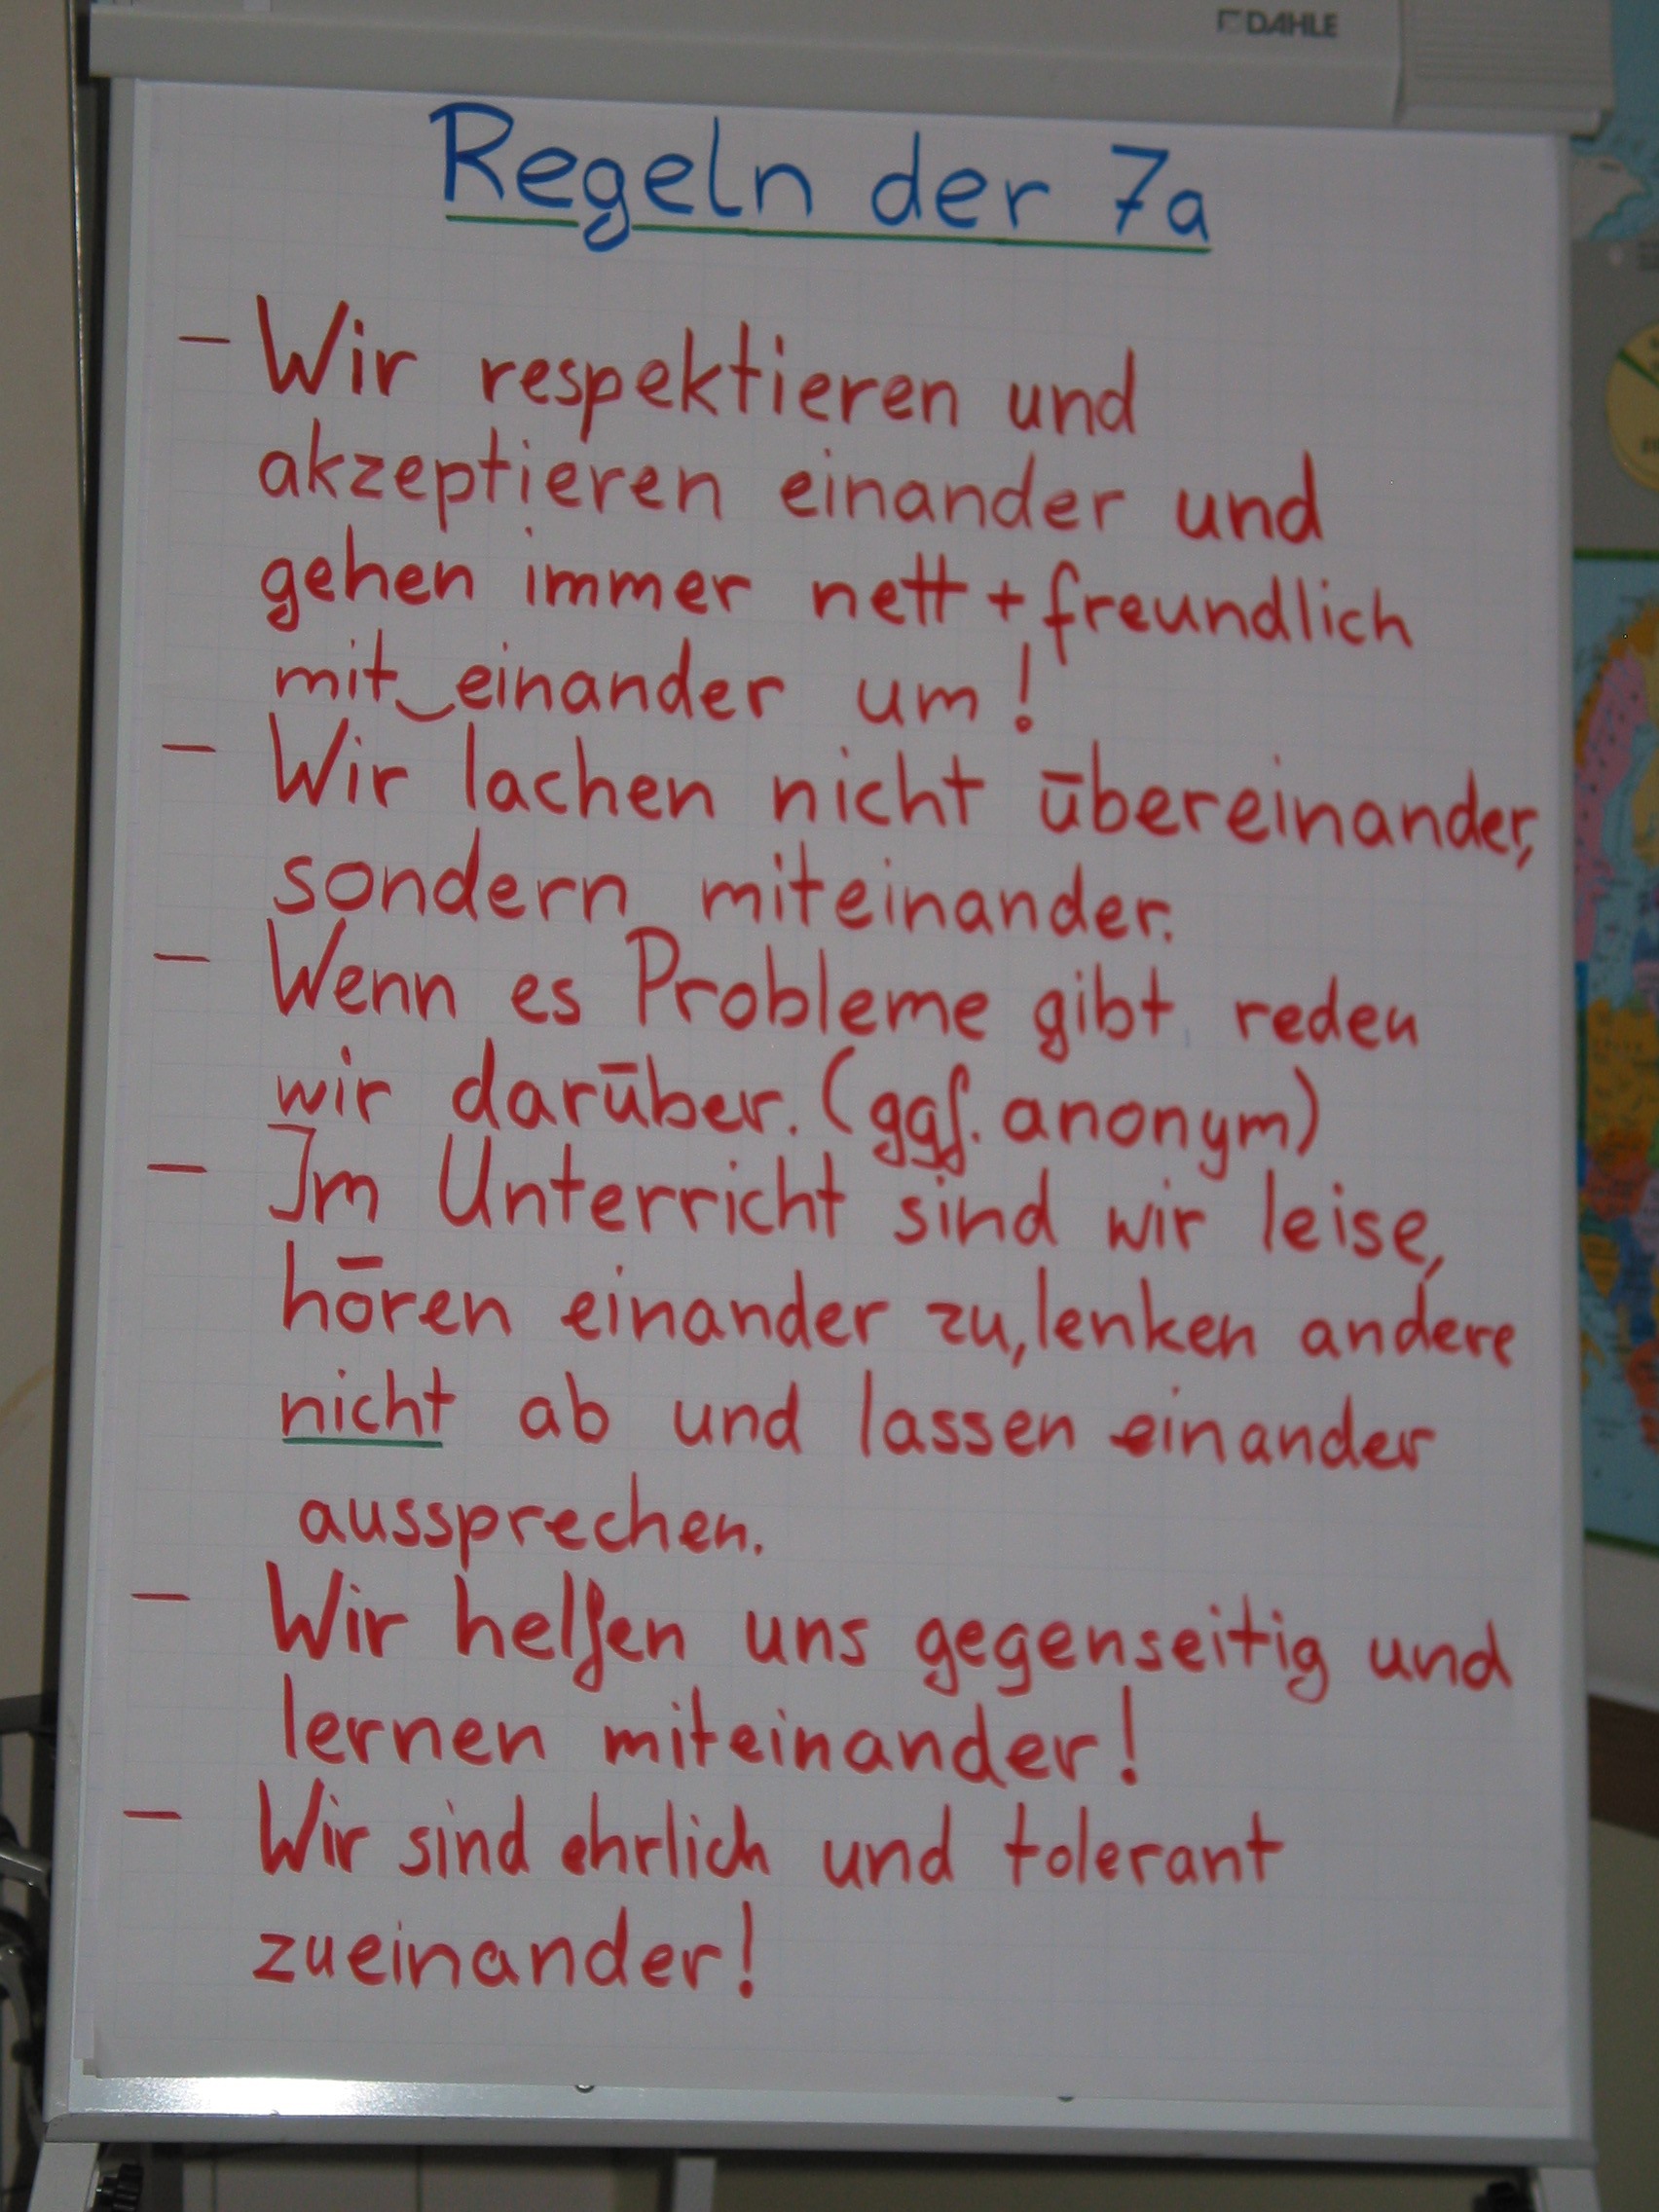 DAHLE
Regeln der 7a
- Wir respektieren und
akzeptieren einander und
gehen immer nett + freundlich
mit‿einander um!
- Wir lachen nicht übereinander,
sondern miteinander.
- Wenn es Probleme gibt reden
wir darüber. (ggf. anonym)
- Im Unterricht sind wir leise,
hören einander zu, lenken andere
nicht ab und lassen einander
aussprechen.
- Wir helfen uns gegenseitig und
lernen miteinander!
- Wir sind ehrlich und tolerant
zueinander!